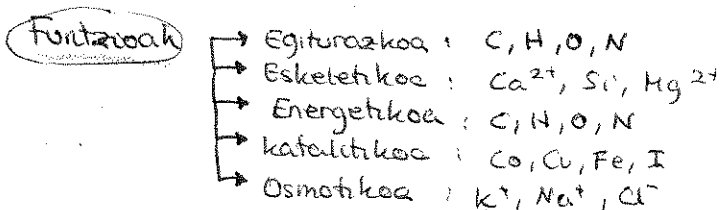 Funtzioak
Egiturazkoa : C, H, O, N
Eskeletikoa : Ca²⁺, Si, Mg²⁺
Energetikoa : C, H, O, N
katalitikoa : Co, Cu, Fe, I
Osmotikoa : K⁺, Na⁺, Cl⁻